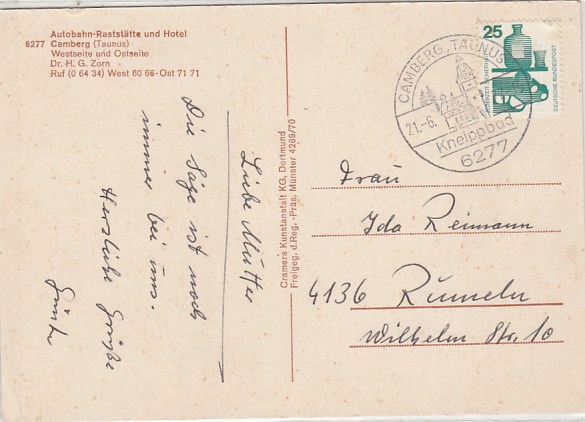 Autobahn-Raststätte und Hotel
6277 Camberg (Taunus)
Westseite und Ostseite
Dr. H. G. Zorn
Ruf (0 64 34) West 60 66 - Ost 71 71
Liebe Mutter
Die Säge ist noch
immer bei uns.
Herzliche Grüße
Günter
Cramers Kunstanstalt KG, Dortmund
Freigeg. d. Reg.-Präs. Münster 4289/70
CAMBERG, TAUNUS
21.-6.
Kneippbad
6277
25
JEDERZEIT SICHERHEIT
DEUTSCHE BUNDESPOST
Frau
Ida Reimann
4136 Rumeln
Wilhelm Str. 10